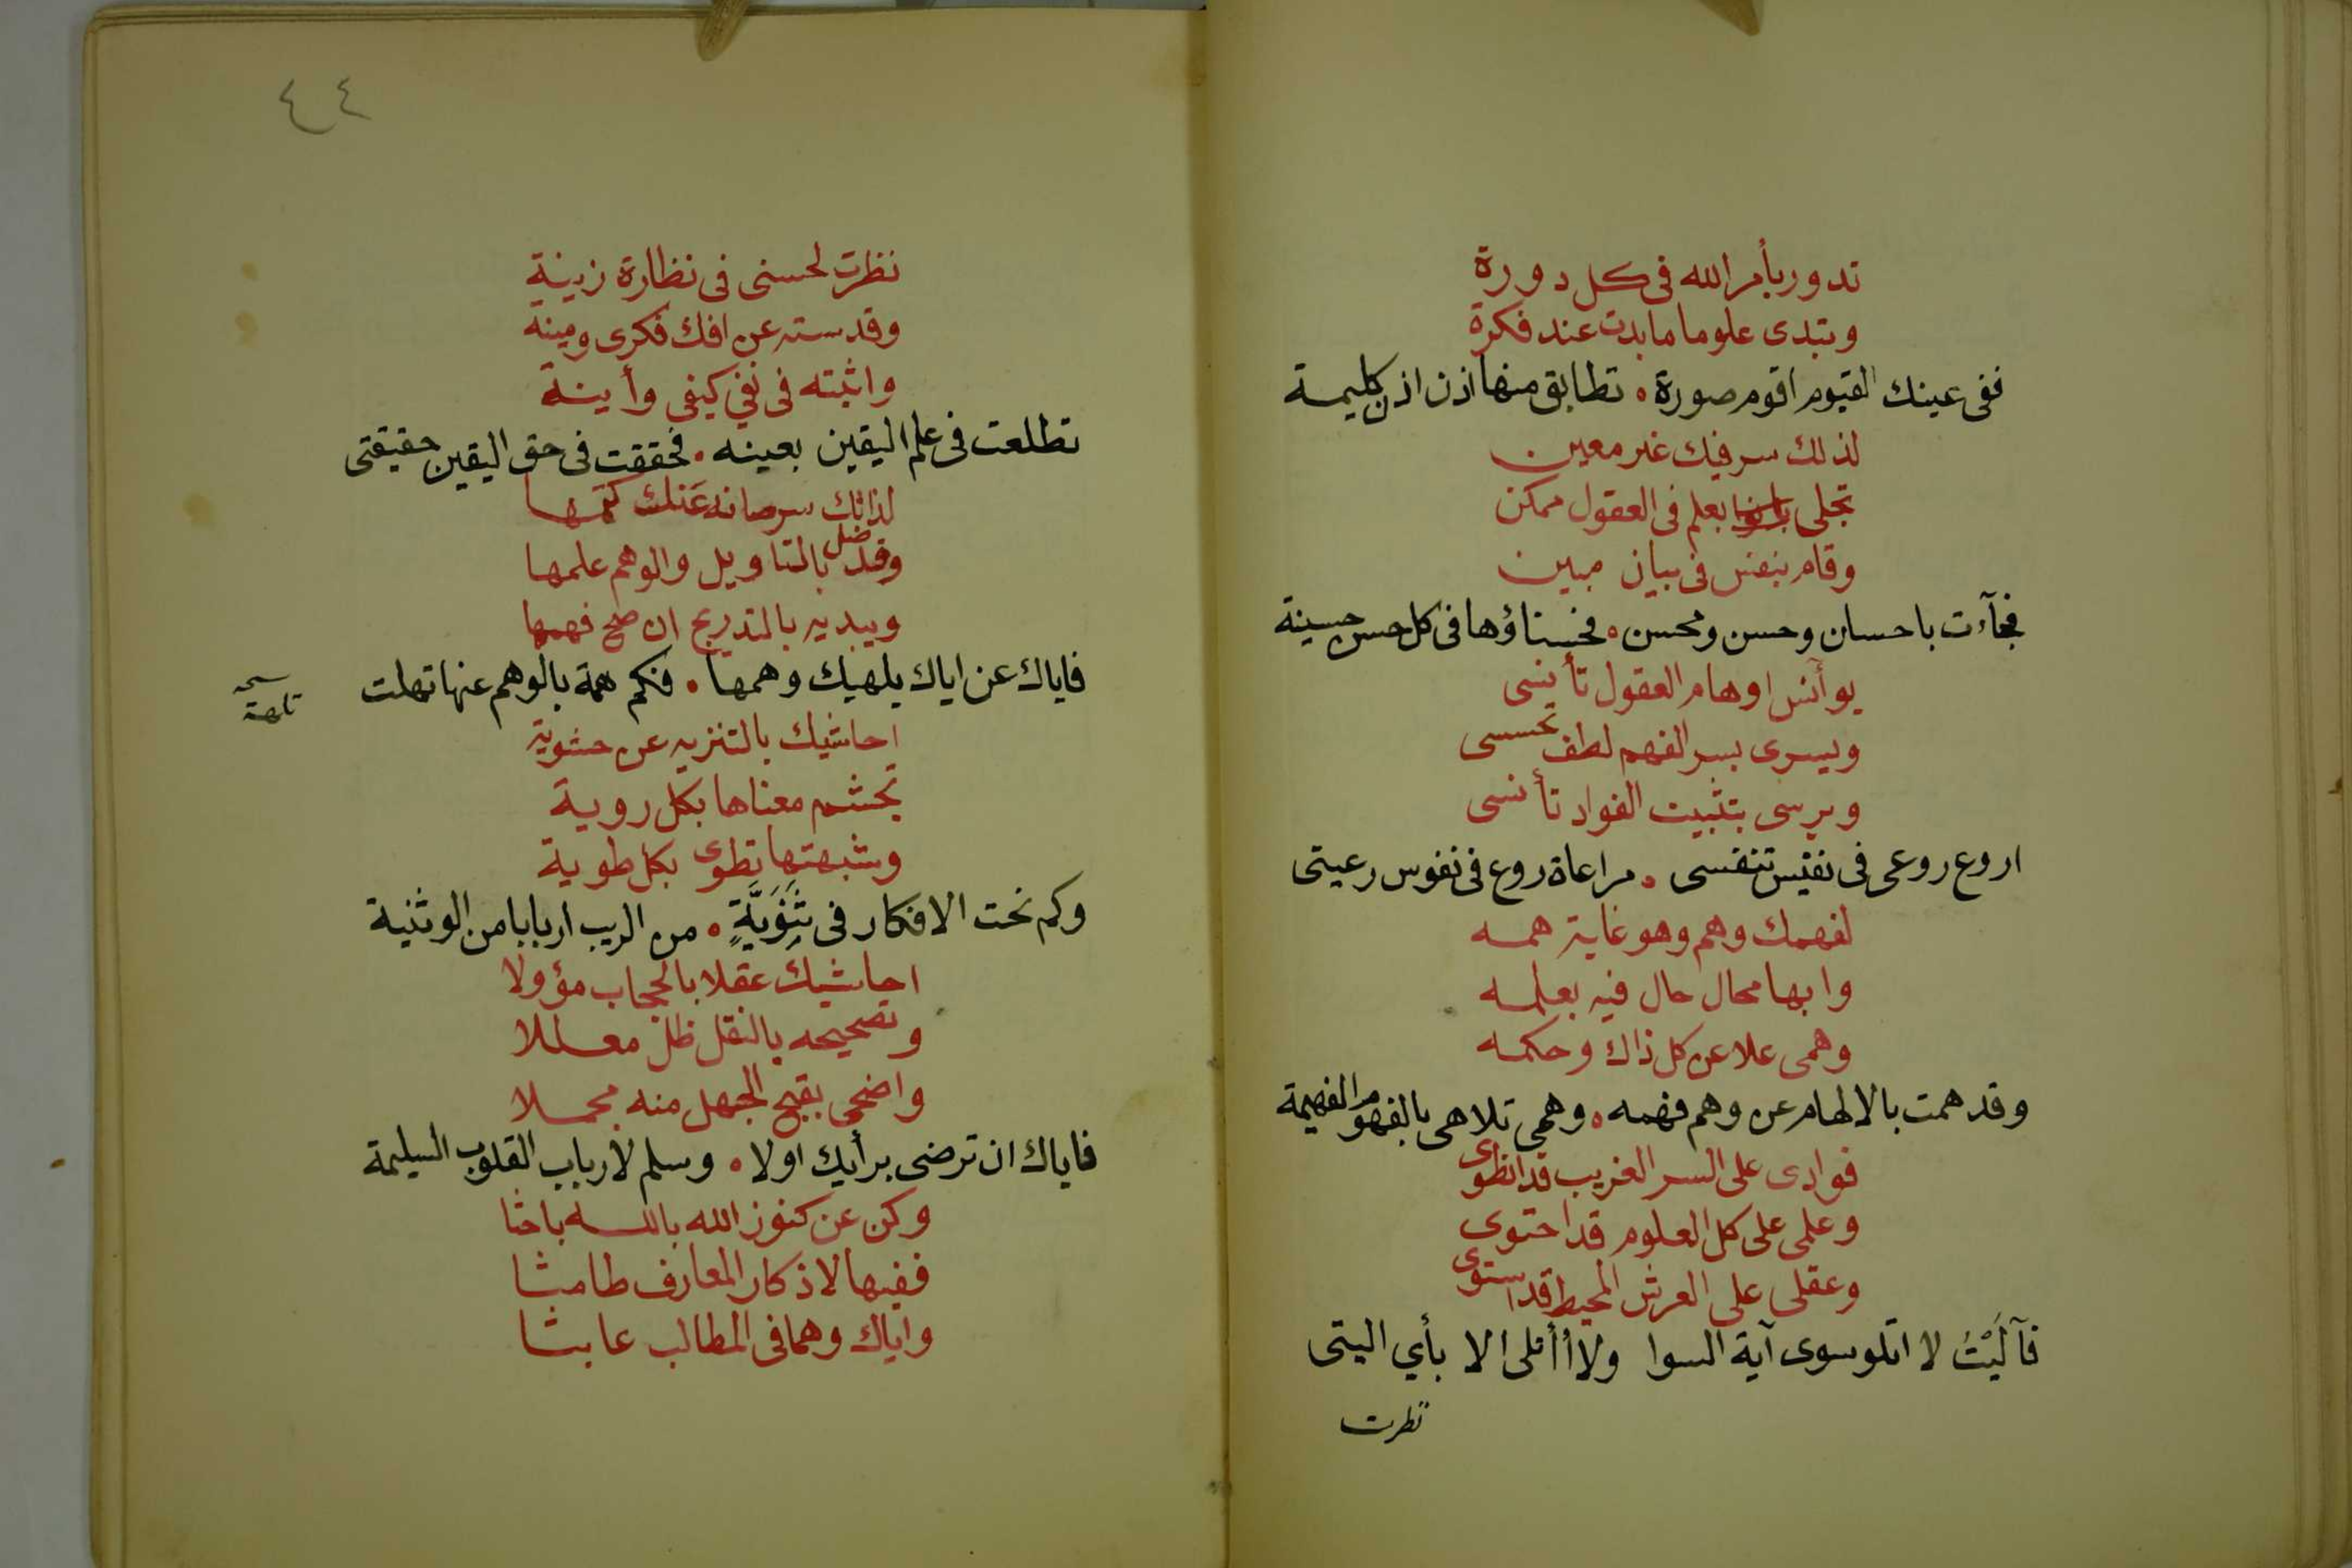 تدور بأمر الله فى كل دورة
وتبدى علوما ما بدت عند فكرة
ففى عينك القيوم اقوم صورة • تطابق منها اذن اذن كليمة
لذلك سر فيك غير معين
تجلى بعلم فى العقول ممكن
وقام بنفس فى بيان مبين
فجآءت باحسان وحسن ومحسن • فحسناؤها فى كل حسن حسينة
يوأنس اوهام العقول تأنسى
ويسرى بسر الفهم لطف تحسسى
ويرسى بتثبيت الفواد تأنسى
اروع روعى فى نفيس تنفسى • مراعاة روع فى نفوس رعيتى
لفهمك وهم وهو غاية همه
وابها محال حال فيه بعلمه
وهمى علا عن كل ذاك وحكمه
وقد همت بالالهام عن وهم فهمه • وهمى تلاهى بالفهوم الفهيمة
فوادى على السر الغريب قد انطوى
وعلمى على كل العلوم قد احتوى
وعقلى على العرش المحيط قد استوى
فآلَيْتُ لا اتلو سوى آية السوا ولا أأتلى الا بأي اليتى
نظرت
٤٤
نظرت لحسنى فى نظارة زينة
وقدسته عن افك فكرى ومينه
واثبته فى نفي كيفى وأينة
تطلعت فى علم اليقين بعينه • فحققت فى حق اليقين حقيقتى
لذاتك سر صانه عَنك كتمها
وقد ضل بالتاويل والوهم علمها
ويبديه بالتدريج ان صح فهمها
فاياك عن اياك يلهيك وهمها • فكم همة بالوهم عنها تهلت
نسخه
تلهت
احاشيك بالتنزيه عن حشوية
تجشم معناها بكل روية
وشبهتها تطوى بكل طوية
وكم نحت الافكار فى ثَنَوَيَّةٍ • من الريب اربابا من الوثنية
احاشيك عقلا بالحجاب مؤولا
وتصحيحه بالنقل ظل معللا
واضحى بقبح الجهل منه مجملا
فاياك ان ترضى برأيك اولا • وسلم لأرباب القلوب السليمة
وكن عن كنوز الله بالله باحثا
ففيها لاذكار المعارف طامثا
واياك وهما فى المطالب عابثا